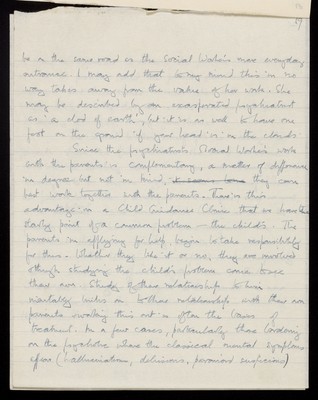 be on the same road as the Social Worker's more everyday
outrance. I may add that to my mind this in no
way takes away from the value of her work. She
may be described by an exasperated psychiatrist
as 'a clod of earth', but it is as well to have one
foot on the ground if your head is in the clouds.
Since the psychiatrist's & Social Worker's work
with the parents is complementary, a matter of difference
in degree but not in kind, they can
best work together with the parents. There is this
advantage in a Child Guidance Clinic that we have the
starting point of a common problem - the child's. The
parents in applying for help, begin to take responsibility
for this. Whether they like it or no, they are involved
& through studying the child's problem come to see
their own. Study of their relationship to him
inevitably links on to their relationship with their own
parents & working this out is often the basis of
treatment. In a few cases, particularly those bordering
on the psychotic where the classical mental symptoms
appear (hallucinations, delusions, paranoid suspicions)